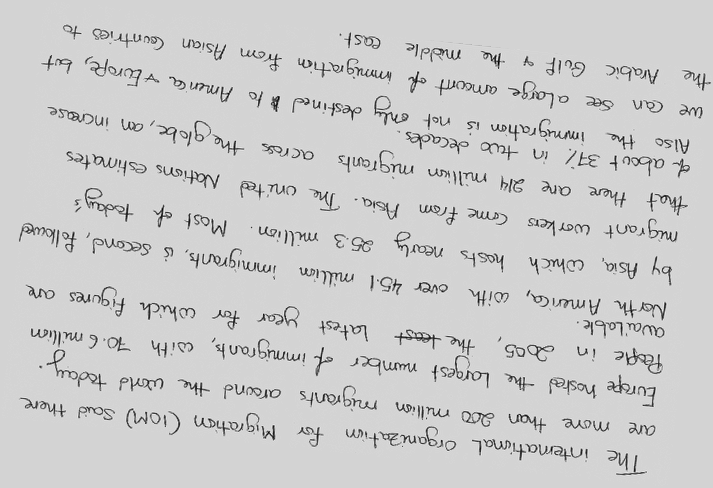 The international Organization for Migration (IOM) Said there
are more than 200 million migrants around the world today.
Europe hosted the Largest number of immigrants, with 70.6 million
People in 2005, the latest year for which figures are
available.
North America, with over 45.1 million immigrants, is second, followed
by Asia, which hosts nearly 25.3 million. Most of today's
migrant workers come from Asia. The united Nations estimates
that there are 214 million migrants across the globe, an increase
of about 37% in two decades.
Also the immigration is not only destined to America & Europe, but
we can see a large amount of immigration from Asian Countries to
the Arabic Gulf & the middle east.